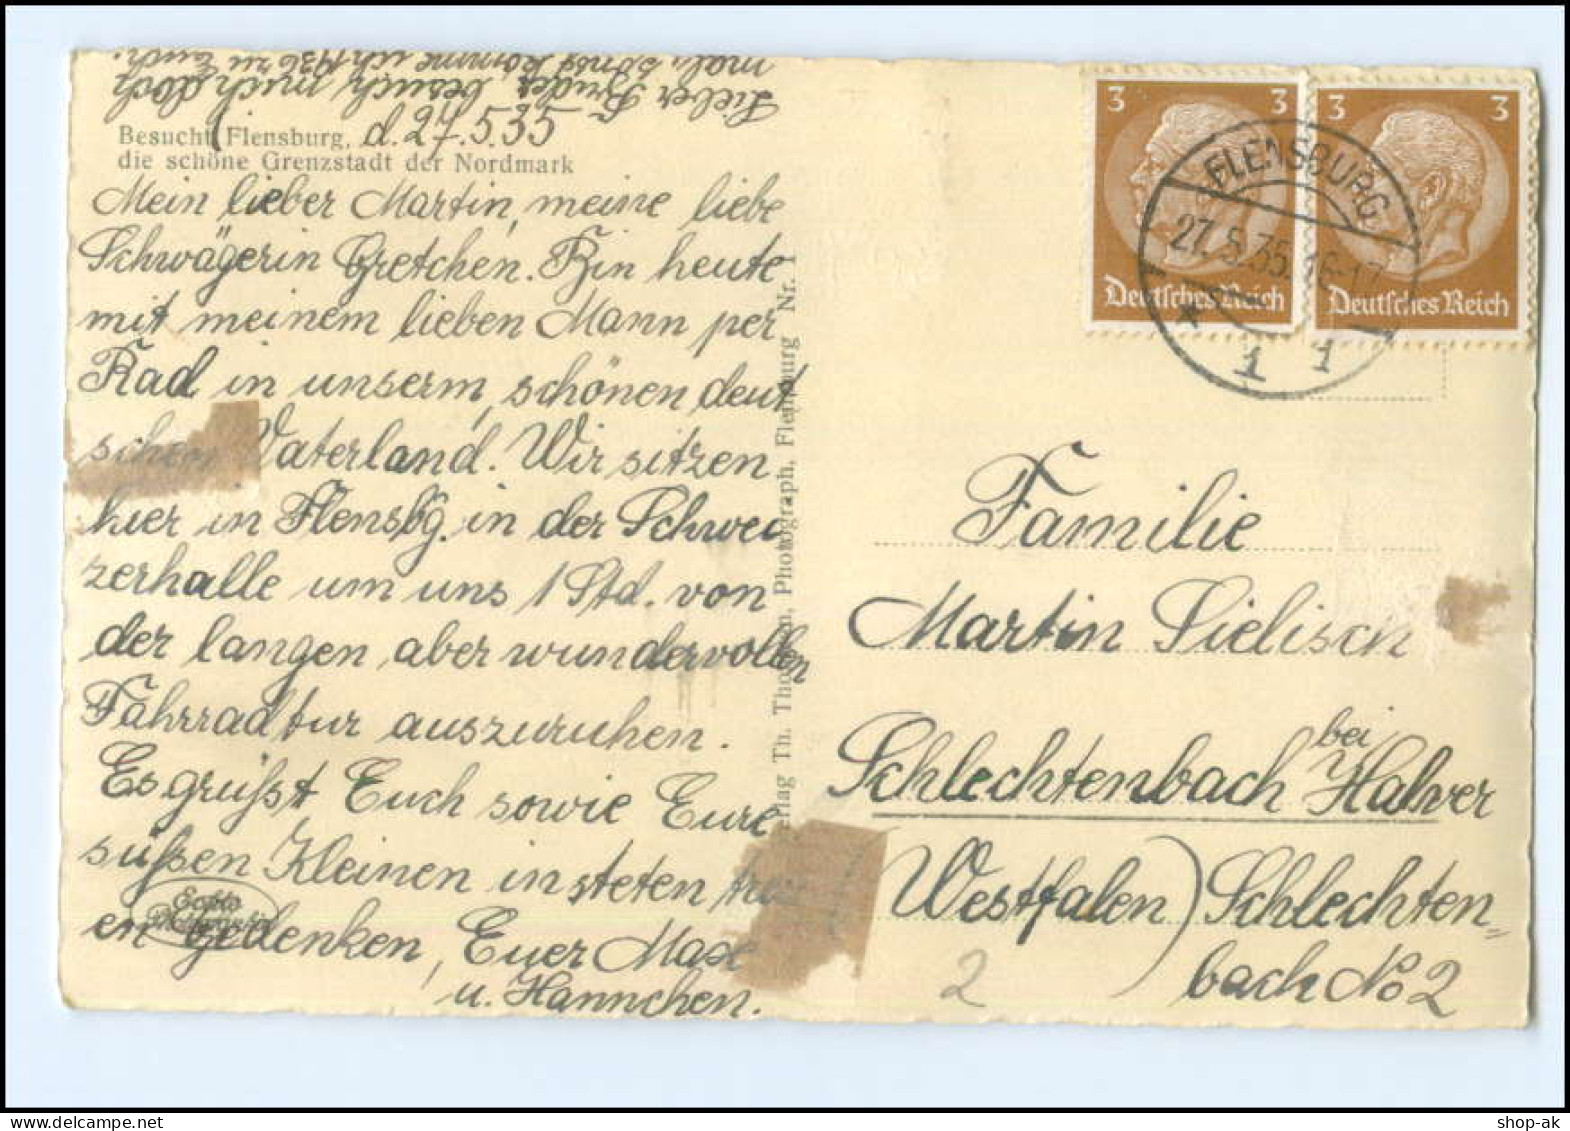 Lieber Bruder besuch mich doch
mal, sonst komme ich 1936 zu Euch.
Besucht Flensburg, d. 27.5.35
die schöne Grenzstadt der Nordmark
Mein lieber Martin, meine liebe
Schwägerin Gretchen. Bin heute
mit meinem lieben Mann per
Rad in unserm, schönen deut
schen Vaterland. Wir sitzen
hier in Flensbg. in der Schwei
zerhalle um uns 1 Std. von
der langen, aber wundervollen
Fahrradtur auszuruhen.
Es grüßt Euch sowie Eure
süßen Kleinen in steten treu
en Gedenken, Euer Max
u. Hannchen.
Echte
Photographie
Verlag Th. Thomsen, Photograph, Flensburg Nr. 1
3 3
Deutsches Reich
3 3
Deutsches Reich
FLENSBURG
27.5.35.16-17
* 1 1
Familie
Martin Sielisch
Schlechtenbach bei Halver
Westfalen) Schlechten=
bach No 2
2
shop-ak